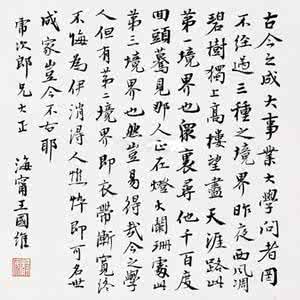 古今之成大事業大學問者罔
不經過三種之境界昨夜西風凋
碧樹獨上高樓望盡天涯路此
第一境界也眾裏尋他千百度
回頭驀見那人正在燈火闌珊處此
第三境界也此豈易得哉今之學
人但有第二境界即衣帶漸寬終
不悔為伊消得人憔悴即可名世
成家豈今不古耶
次郎兄大正
海甯王國維